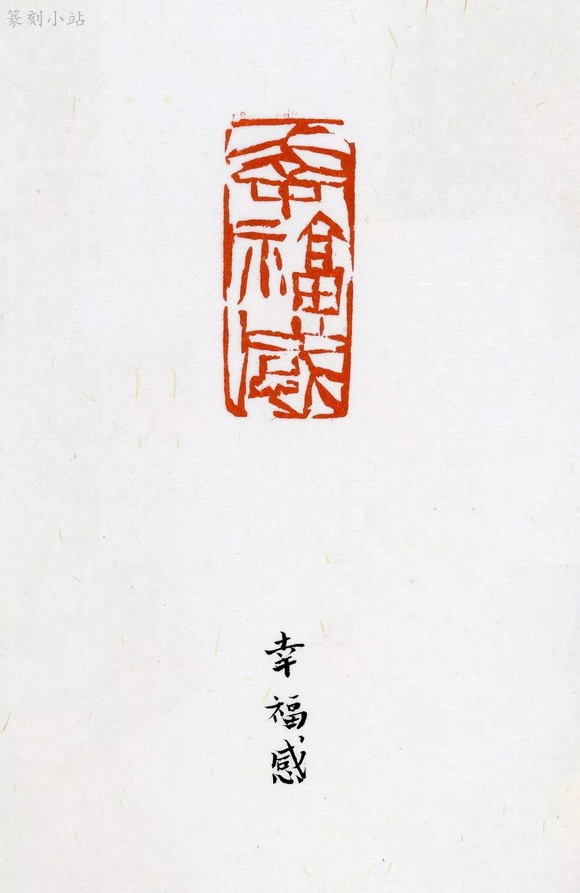 篆刻小站
幸福感
幸
福
感